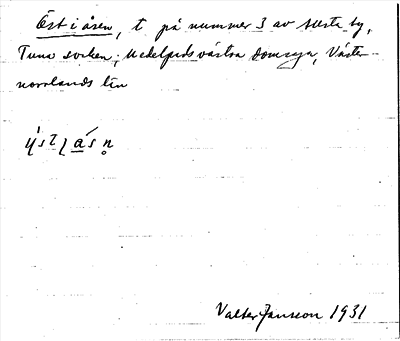 Öst i åsen, t på nummer 3 av by,
Tuna socken, Medelpads västra domsaga, Väster-
norrlands län
Valter Jansson 1931